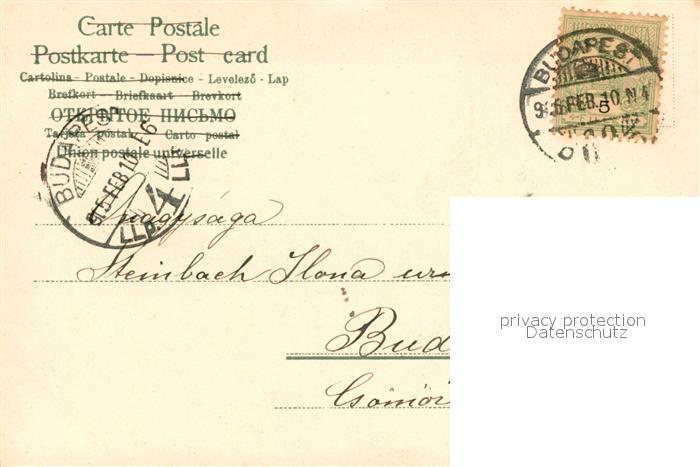 Carte Postale
Postkarte – Post card
Cartolina - Postale - Dopisnice - Levelező - Lap
Brefkort - Briefkaart - Brevkort
ОТКРЫТОЕ ПИСЬМО
Tarjeta postal - Carto postal
Union postale universelle
BUDAPEST
5 FEB 10
4
BUDAPEST
FEB. 10 N4
5
nagysága
Steinbach Ilona
Bud
Csömöi
privacy protection
Datenschutz